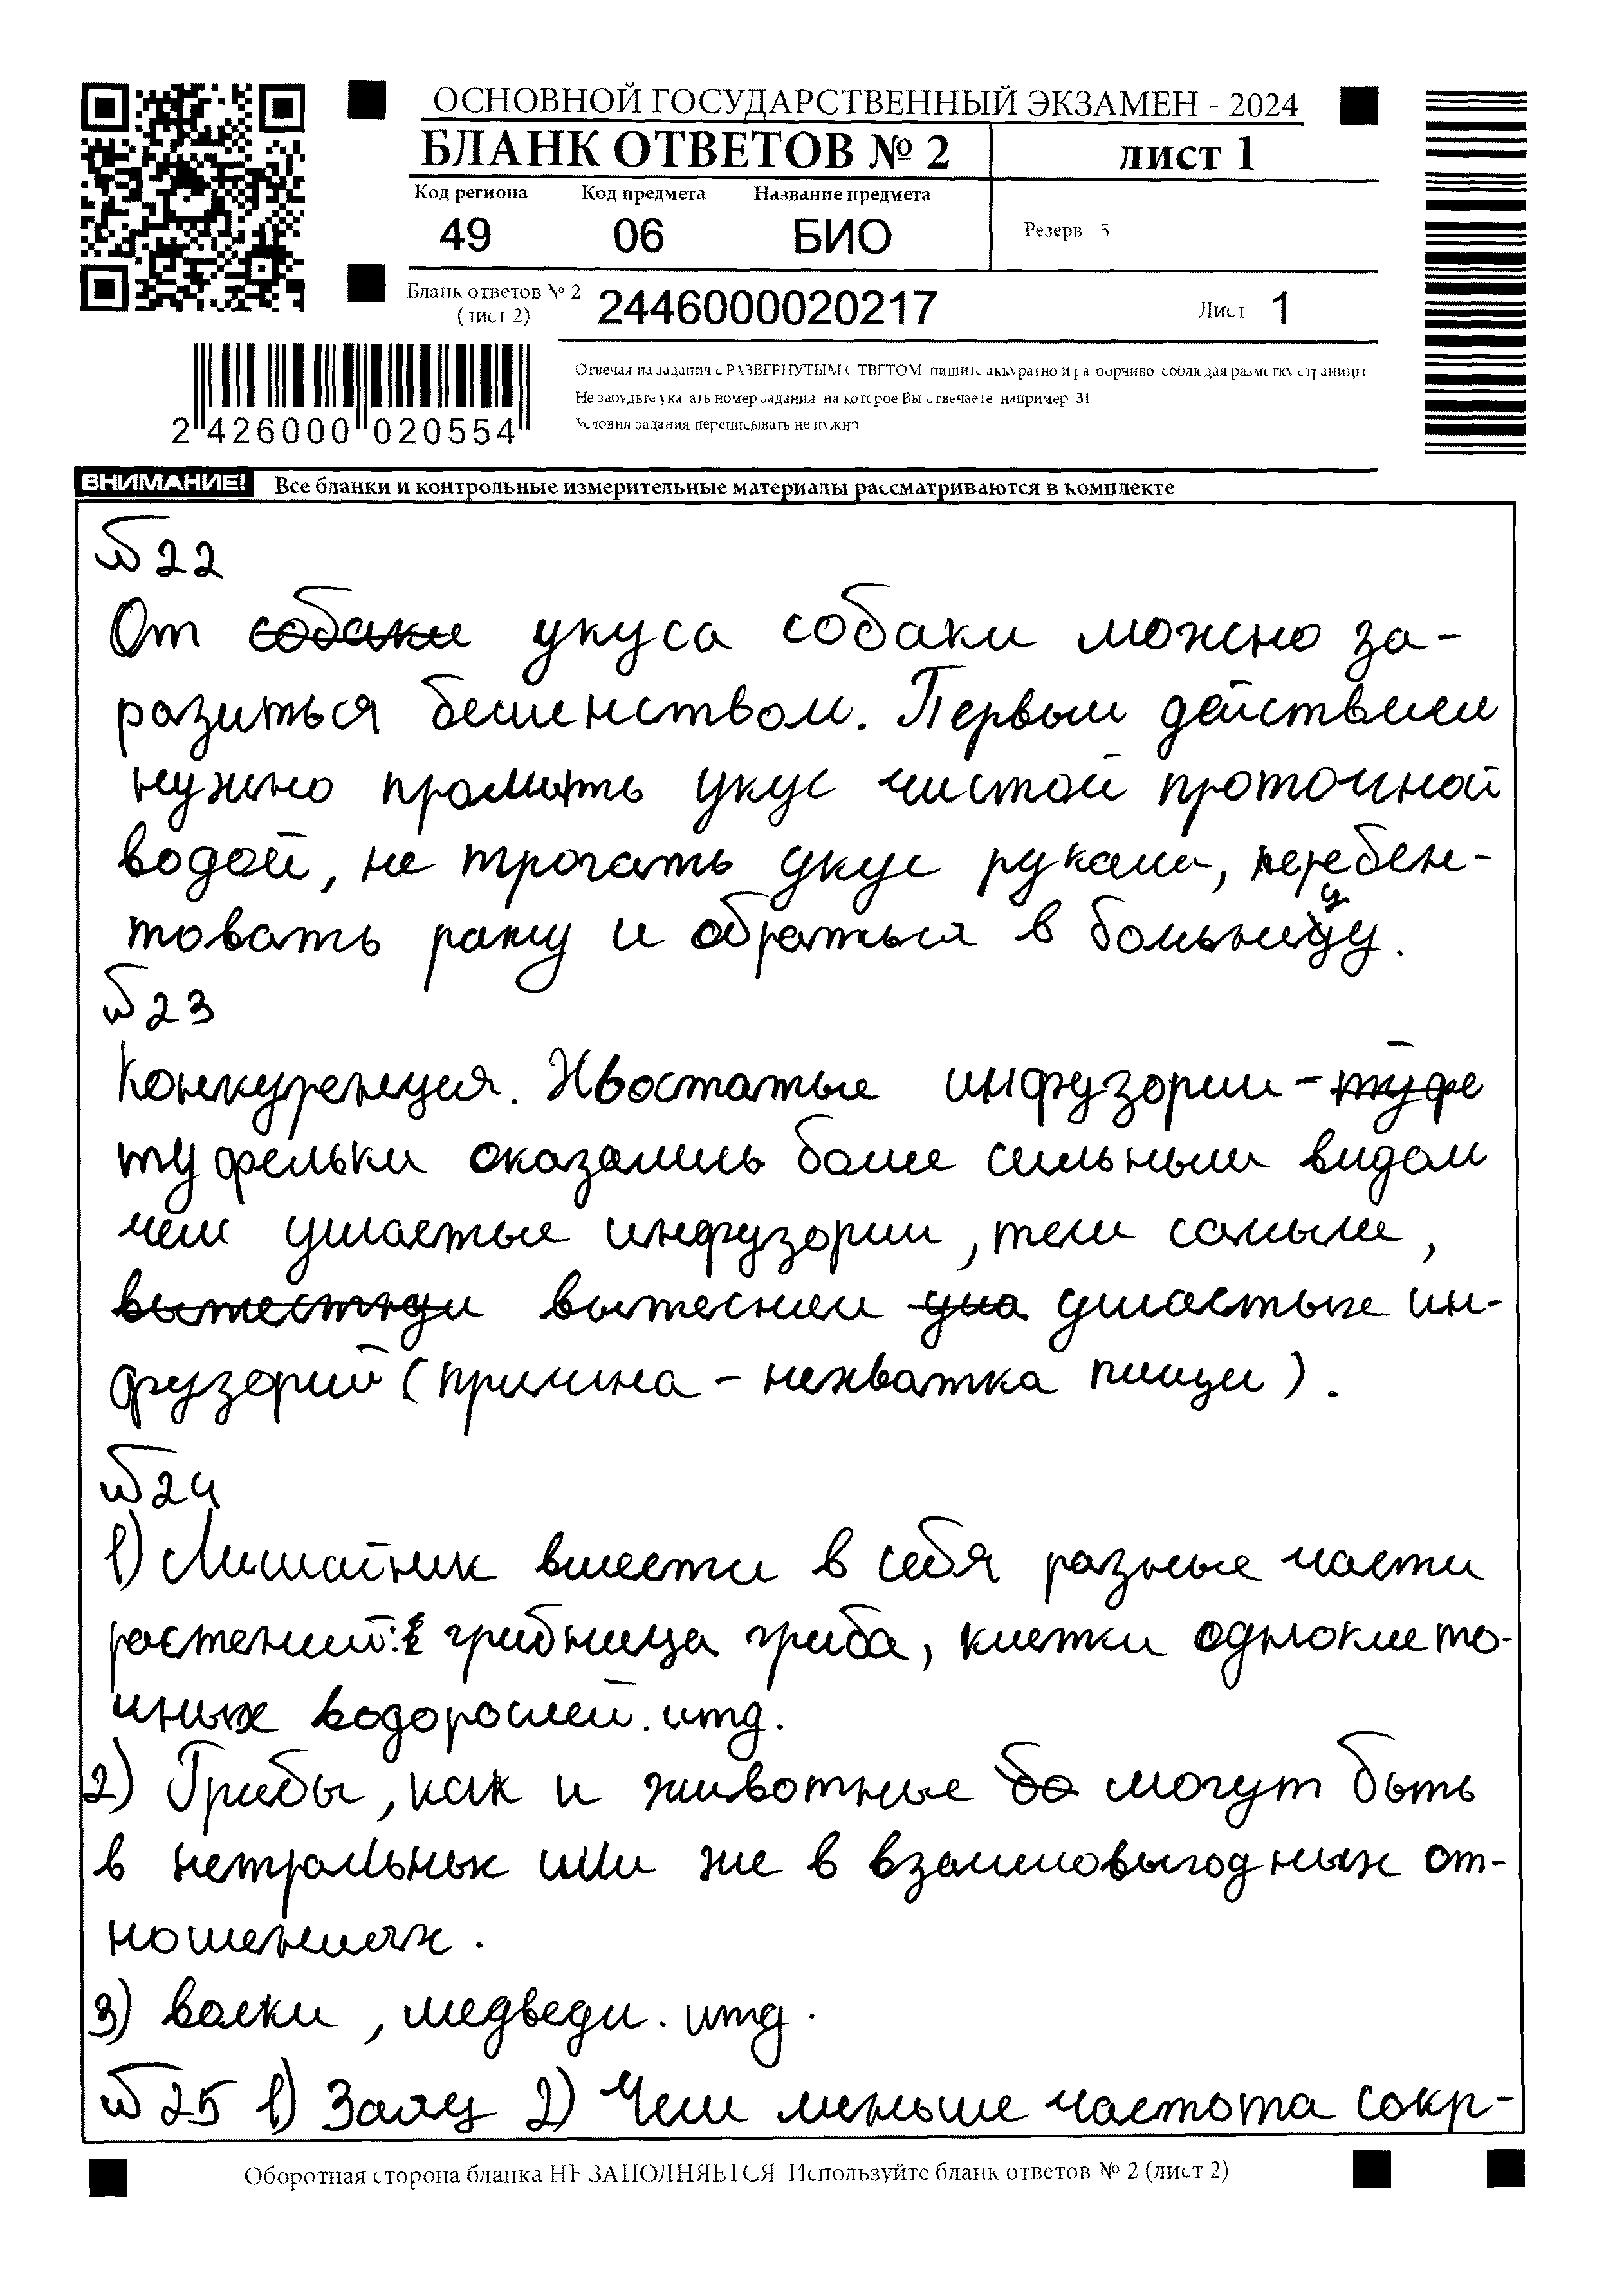 ОСНОВНОЙ ГОСУДАРСТВЕННЫЙ ЭКЗАМЕН - 2024
БЛАНК ОТВЕТОВ № 2
лист 1
Код региона Код предмета Название предмета
49 06 БИО
Резерв 5
Бланк ответов № 2
(лист 2)
2446000020217
Лист 1
2 426000 020554
Отвечая на задания с РАЗВЕРНУТЫМ ОТВЕТОМ пишите аккуратно и разборчиво соблюдая разметку страницы
Не забудьте указать номер задания на которое Вы отвечаете например 31
Условия задания переписывать не нужно
ВНИМАНИЕ! Все бланки и контрольные измерительные материалы рассматриваются в комплекте
№22
От собаки укуса собаки можно за-
разиться бешенством. Первым действием
нужно промыть укус чистой проточной
водой, не трогать укус руками, перебен-
товать рану и обраться в больницу.
№23
Конкуренция. Хвостатые инфузории - туфе
туфельки оказались более сильным видом
чем ушастые инфузории, тем самым,
вытеснили ушастых ин-
фузорий (причина - нехватка пищи).
№24
1) Лишайник вмести в себя разные части
растений: грибница гриба, клетки однокле то-
чных водорослей. итд.
2) Грибы, как и животные бо могут быть
в нетральных или же в взаимовыгодных от-
ношениях.
3) волки, медведи. итд.
№25 1) Заяц 2) Чем меньше частота сокр-
Оборотная сторона бланка НЕ ЗАПОЛНЯЕТСЯ Используйте бланк ответов № 2 (лист 2)